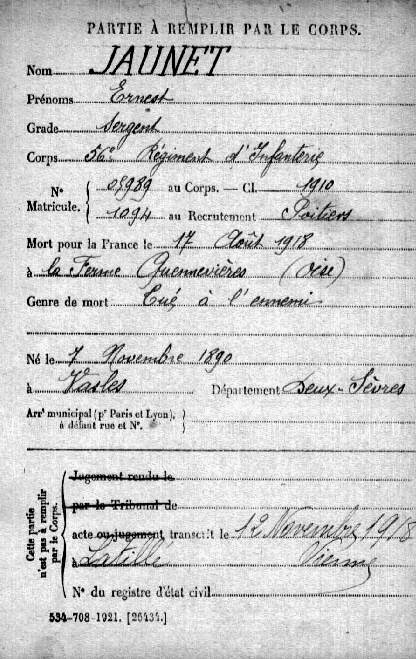 PARTIE À REMPLIR PAR LE CORPS.
Nom JAUNET
Prénoms Ernest
Grade Sergent
Corps 56e Régiment d'Infanterie
N° Matricule. { 05989 au Corps. — Cl. 1910
1094 au Recrutement Poitiers
Mort pour la France le 17 Août 1918
à la Ferme Quennevières (Oise)
Genre de mort Tué à l'ennemi
Né le 7 Novembre 1890
à Vasles Département Deux-Sèvres
Arrt municipal (pr Paris et Lyon),
à défaut rue et N°.
Cette partie n'est pas à remplir par le Corps.
Jugement rendu le
par le Tribunal de
acte ou jugement transcrit le 12 Novembre 1918
à Latillé Vienne
N° du registre d'état civil
534-708-1921. [26434.]